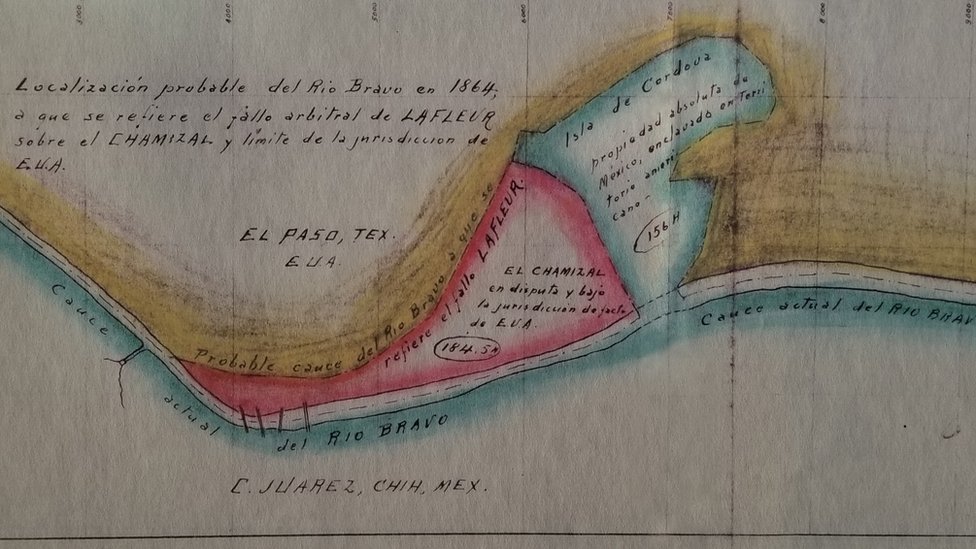 3000
4000
5000
6000
7000
8000
9000
Localización probable del Rio Bravo en 1864;
a que se refiere el fallo arbitral de LAFLEUR
sobre el CHAMIZAL y límite de la jurisdiccion de
E.U.A.
Isla de Cordova
propiedad absoluta de
México, enclavado en Terri
torio ameri
cano -
156 H
EL PASO, TEX.
E.U.A.
Probable cauce del Rio Bravo a que se
refiere el fallo LAFLEUR.
EL CHAMIZAL
en disputa y bajo
la jurisdicción de facto
de E.U.A.
184.5 H
Cauce actual del RIO BRAVO
Cauce actual del RIO BRAV
C. JUAREZ, CHIH, MEX.